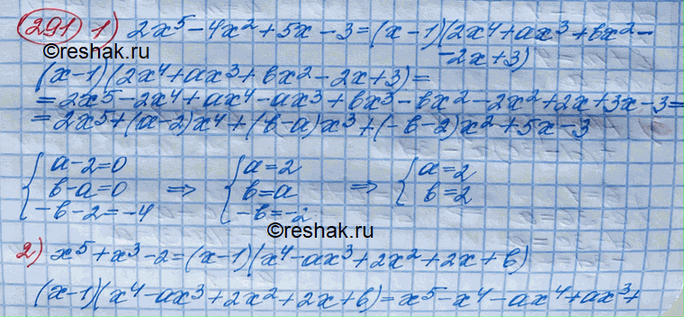 291 1) 2x⁵-4x²+5x-3=(x-1)(2x⁴+ax³+bx²-
©reshak.ru
-2x+3)
(x-1)(2x⁴+ax³+bx²-2x+3)=
=2x⁵-2x⁴+ax⁴-ax³+bx³-bx²-2x²+2x+3x-3=
=2x⁵+(a-2)x⁴+(b-a)x³+(-b-2)x²+5x-3
{a-2=0 {a=2 {a=2
{b-a=0 ⇒ {b=a ⇒ {b=2
{-b-2=-4 {-b=-2
©reshak.ru
2) x⁵+x³-2=(x-1)(x⁴-ax³+2x²+2x+b)
(x-1)(x⁴-ax³+2x²+2x+b)=x⁵-x⁴-ax⁴+ax³+